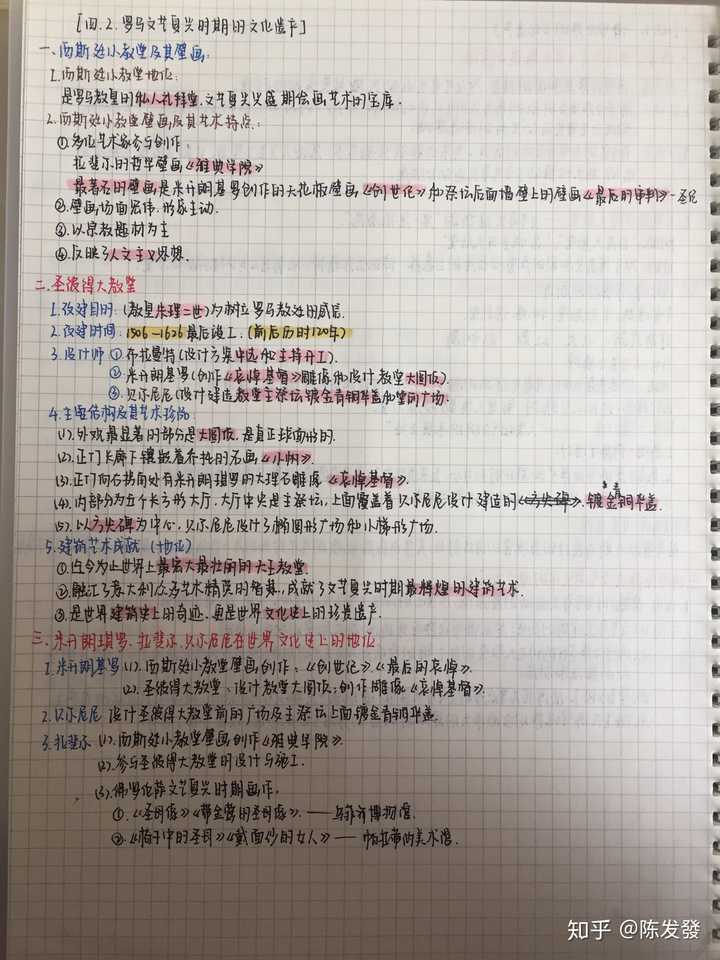 [四.2.罗马文艺复兴时期的文化遗产]
一、西斯廷小教堂及其壁画:
1.西斯廷小教堂地位:
是罗马教皇的私人礼拜堂.文艺复兴盛期绘画艺术的宝库.
2.西斯廷小教堂壁画及其艺术特点:
①多位艺术家参与创作:
拉斐尔的哲学壁画《雅典学院》
最著名的壁画是米开朗基罗创作的天花板壁画《创世纪》和祭坛后面墙壁上的壁画《最后的审判》
②.壁画场面宏伟.形象生动.
③.以宗教题材为主
④.反映了人文主义思想.
二.圣彼得大教堂
1.改建目的:(教皇朱理二世)为树立罗马教廷的威信.
2.改建时间:1506—1626最后竣工.(前后历时120年)
3.设计师①布拉曼特(设计方案中选和主持开工).
②.米开朗基罗(创作《哀悼基督》雕像和设计教堂大圆顶).
③.贝尔尼尼(设计建造教堂主祭坛镀金青铜华盖和堂前广场.
4.主要结构及其艺术珍品
(1).外观最显著的部分是大圆顶.是真正球面形的.
(2).正门上廊下镶嵌着乔托的石画《小帆》.
(3).正门向右拐南处有米开朗琪罗的大理石雕像《哀悼基督》.
(4).内部分为五个长方形大厅.大厅中央是主祭坛.上面覆盖着贝尔尼尼设计建造的《方尖碑》.镀金青铜华盖.
(5).以方尖碑为中心.贝尔尼尼设计了椭圆形广场和小梯形广场.
5.建筑艺术成就(地位)
①.迄今为止世界上最宏大最壮丽的天主教堂.
②.融汇了意大利众多艺术精英的智慧,成就了文艺复兴时期最辉煌的建筑艺术.
③.是世界建筑史上的奇迹.更是世界文化史上的珍贵遗产.
三.米开朗琪罗.拉斐尔.贝尔尼尼在世界文化史上的地位
1.米开朗基罗(1).西斯廷小教堂壁画创作:《创世纪》《最后的哀悼》.
(2).圣彼得大教堂:设计教堂大圆顶:创作雕像《哀悼基督》.
2.贝尔尼尼 设计圣彼得大教堂前的广场及主祭坛上面镀金青铜华盖.
3.拉斐尔(1).西斯廷小教堂壁画创作《雅典学院》.
(2).参与圣彼得大教堂的设计与施工.
(3).佛罗伦萨文艺复兴时期画作.
①.《圣母像》《带金莺的圣母像》.——乌菲齐博物馆.
②.《椅子中的圣母》《戴面纱的女人》——帕拉蒂尚美术馆.
知乎 @陈发發